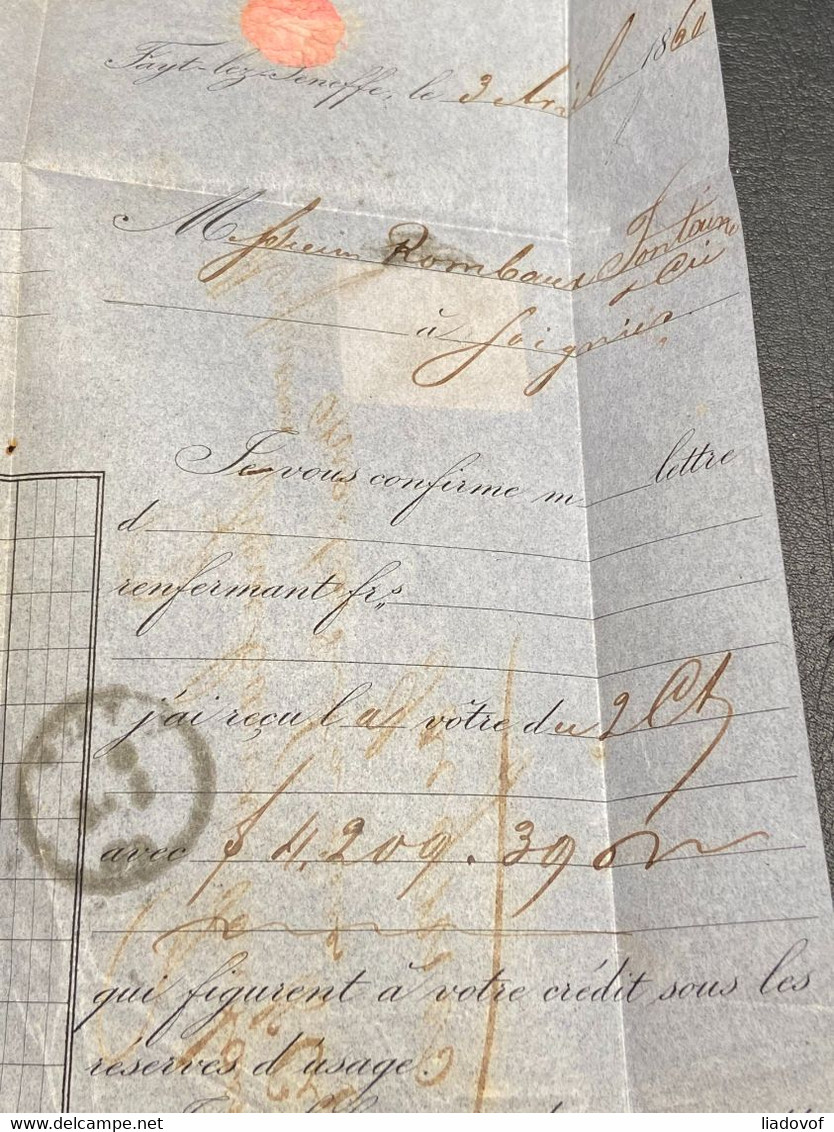 Fayt-lez-Seneffe, le 3 Avril 1860
Messieurs Rombaux Fontaine
& Cie
à Soignies
Je vous confirme m lettre
d
renfermant frs
j'ai reçu la votre du 2 Ct
avec f 4,209.39
qui figurent à votre crédit sous les
réserves d'usage.
delcampe.net
liadovof